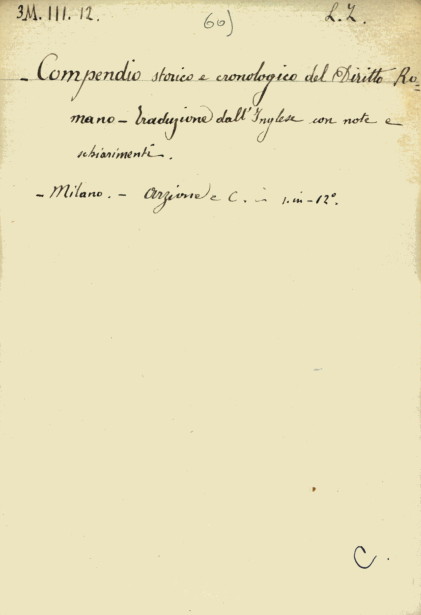 3M. III. 12. 60) L. Z.
- Compendio storico e cronologico del Diritto Ro=
mano - Traduzione dall'Inglese con note e
schiarimenti.
- Milano. - Arzione e C. - 1. in - 12º.
C.